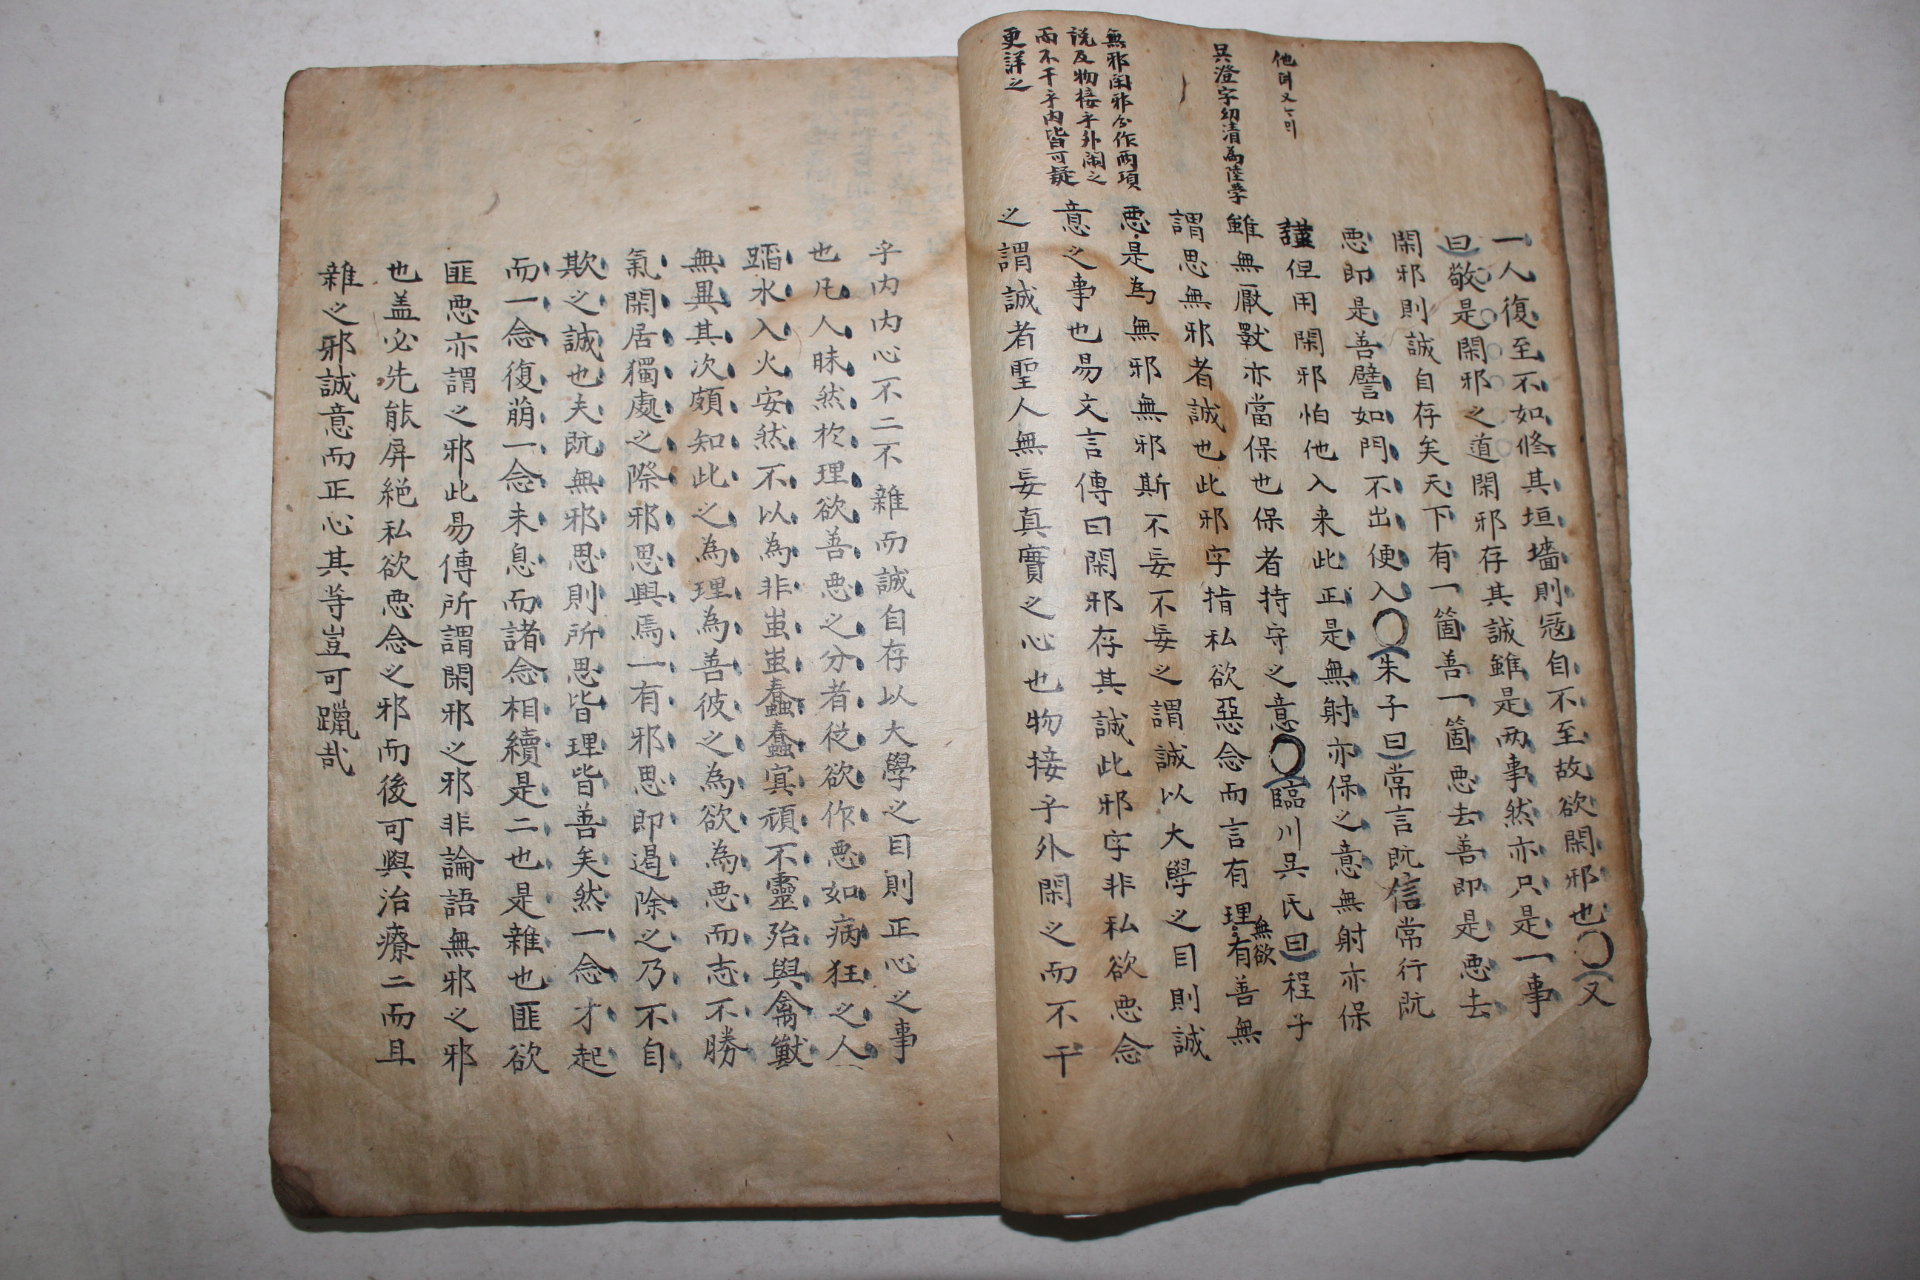 一人復至不如修其垣墻則寇自不至故欲閑邪也〇又
曰敬是閑邪之道閑邪存其誠雖是两事然亦只是一事
閑邪則誠自存矣天下有一箇善一箇悪去善即是悪去
悪即是善譬如門不出便入〇朱子曰常言旣信常行旣
謹但用閑邪怕他入来此正是無射亦保之意無射亦保
雖無厭斁亦當保也保者持守之意〇臨川吳氏曰程子
謂思無邪者誠也此邪字指私欲惡念而言有理無欲有善無
悪是為無邪無邪斯不妄不妄之謂誠以大學之目則誠
意之事也易文言傳曰閑邪存其誠此邪字非私欲悪念
之謂誠者聖人無妄真實之心也物接乎外閑之而不干
吳澄字幼清為陸學
無邪閑邪分作两項
說及物接乎外閑之
而不干乎内皆可疑
更詳之
乎内内心不二不雜而誠自存以大學之目則正心之事
也凡人昧然於理欲善悪之分者従欲作悪如病狂之人
蹈水入火安然不以為非蚩蚩蠢蠢冥頑不靈殆與禽獸
無異其次頗知此之為理為善彼之為欲為悪而志不勝
氣閑居獨處之際邪思興焉一有邪思即遏除之乃不自
欺之誠也夫旣無邪思則所思皆理皆善矣然一念才起
而一念復萠一念未息而諸念相續是二也是雜也匪欲
匪悪亦謂之邪此易傳所謂閑邪之邪非論語無邪之邪
也盖必先能屏絕私欲悪念之邪而後可與治療二而且
雜之邪誠意而正心其等豈可躐哉